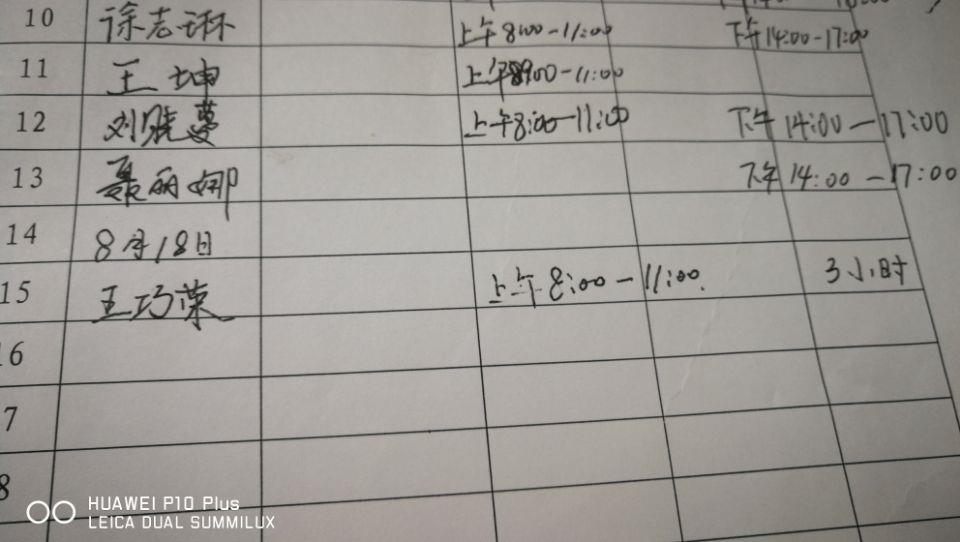 10 徐志琳 上午8:00-11:00 下午14:00-17:00
11 王坤 上午8:00-11:00
12 刘晓蔓 上午8:00-11:00 下午14:00-17:00
13 聂丽娜 下午14:00-17:00
14 8月18日
15 王巧荣 上午8:00-11:00. 3小时
16
7
8
HUAWEI P10 Plus
LEICA DUAL SUMMILUX